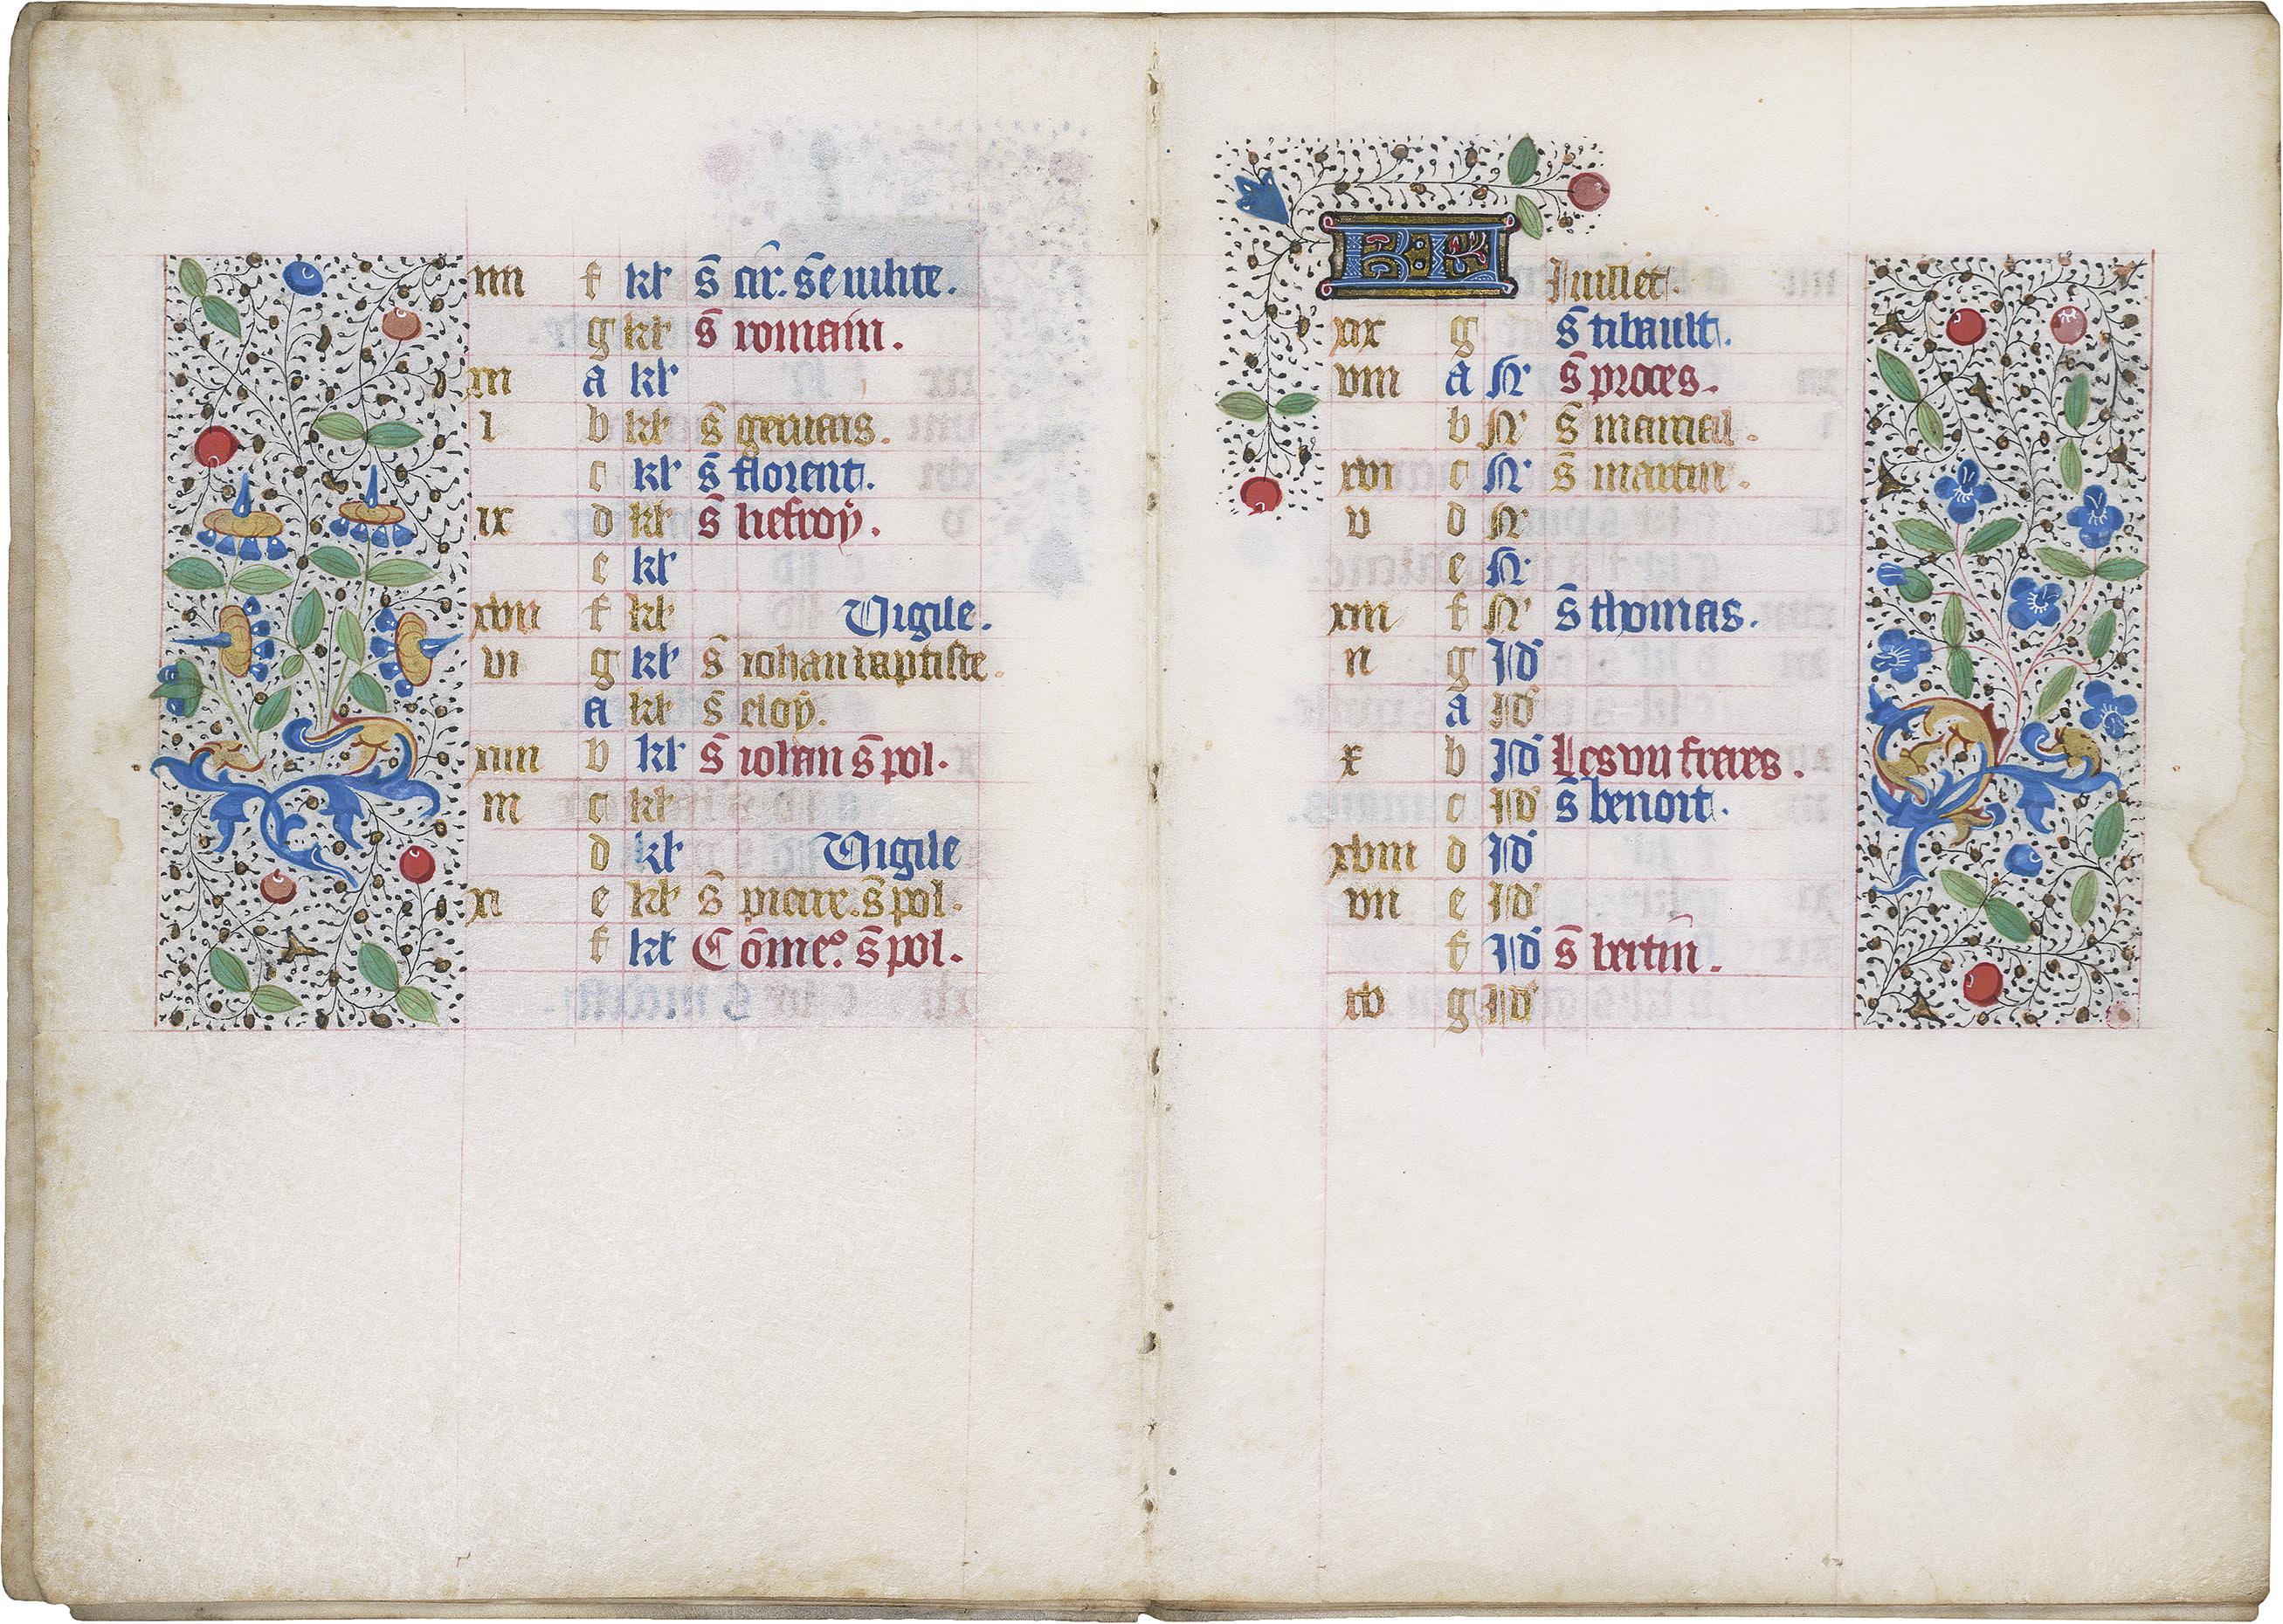 iiii f kl' s̄ cir. s̄e iulite.
g kl' s̄ romain.
xii a kl'
i b kl' s̄ geruais.
c kl' s̄ florent.
ix d kl' s̄ liefroÿ.
e kl'
xvii f kl' Vigile.
vi g kl' s̄ iohan baptiste.
a kl' s̄ eloÿ.
xiiii b kl' s̄ iohan s̄ pol.
iii c kl'
d kl' Vigile
xi e kl' s̄ pierre. s̄ pol.
f kl' Cōmeº. s̄ pol.
KL Juillet.
xix g s̄ tibault.
viii a N' s̄ proces.
b N' s̄ marcial.
xvi c N' s̄ martin.
v d N'
e N'
xiii f N' s̄ thomas.
ii g Id'
a Id'
x b Id' Les vii freres.
c Id' s̄ benoit.
xviii d Id'
vii e Id'
f Id' s̄ bertin.
xv g Id'